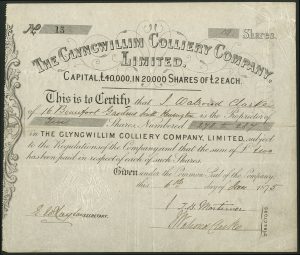 No 13 Shares.
THE GLYNGWILLIM COLLIERY COMPANY,
LIMITED.
CAPITAL, £40,000, IN 20,000 SHARES OF £2 EACH.
This is to Certify that J. Walrond Clarke
of 16 Gardens South Kensington is the Proprietor of
Shares Numbered
in THE GLYNGWILLIM COLLIERY COMPANY, LIMITED, subject
to the Regulations of the Company and that the sum of £ two
has been paid in respect of each of such Shares.
Given under the Common Seal of the Company,
this 6th day of 1875